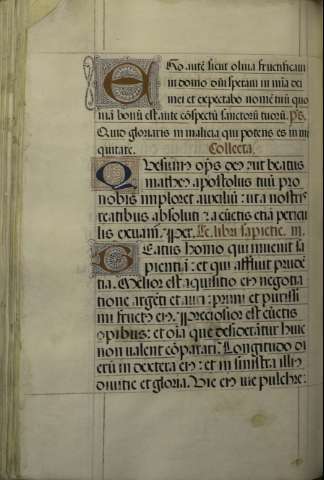 Ego autē sicut oliua fructificaui
in domo dñi speraui in mīa dei
mei et expectabo nomē tuū quo
niā bonū est ante cōspectū sanctorū tuorū. ps.
Quid gloriaris in malicia qui potens es in ini
quitate. Collecta.
Quesum⁹ op̄s deus ut beatus
matheus apostolus tuū pro
nobis imploret auxiliū ut a nostris
reatibus absoluti a cūctis etiā pericu
lis exuam⁹. Per. Lc̄ libri sapiētie.
Beatus homo qui inuenit sa
pientiā: et qui affluit prudē
tia. Melior est aquisitio eius negotia
tione argēti et auri: primi et purissi
mi fructus eius. Preciosior est cūctis
opibus: et oīa que desiderātur huic
non ualent cōparari. Longitudo di
erū in dextera eius: et in sinistra illius
diuitie et gloria. Vie eius uie pulchre: